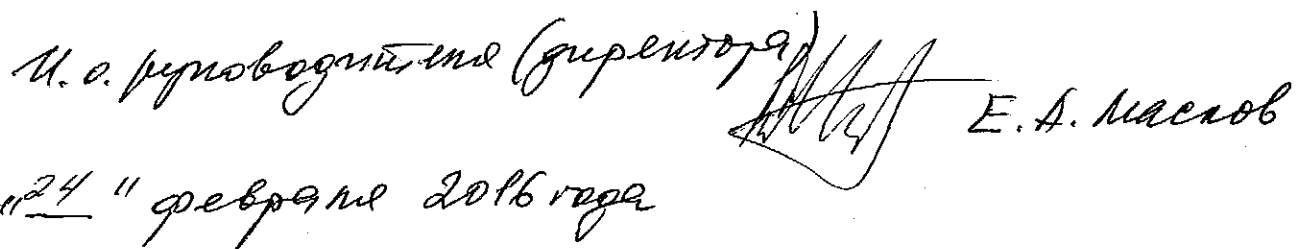 И.о. руководителя (директора) Е.А. Маслов
„24" февраля 2016 года